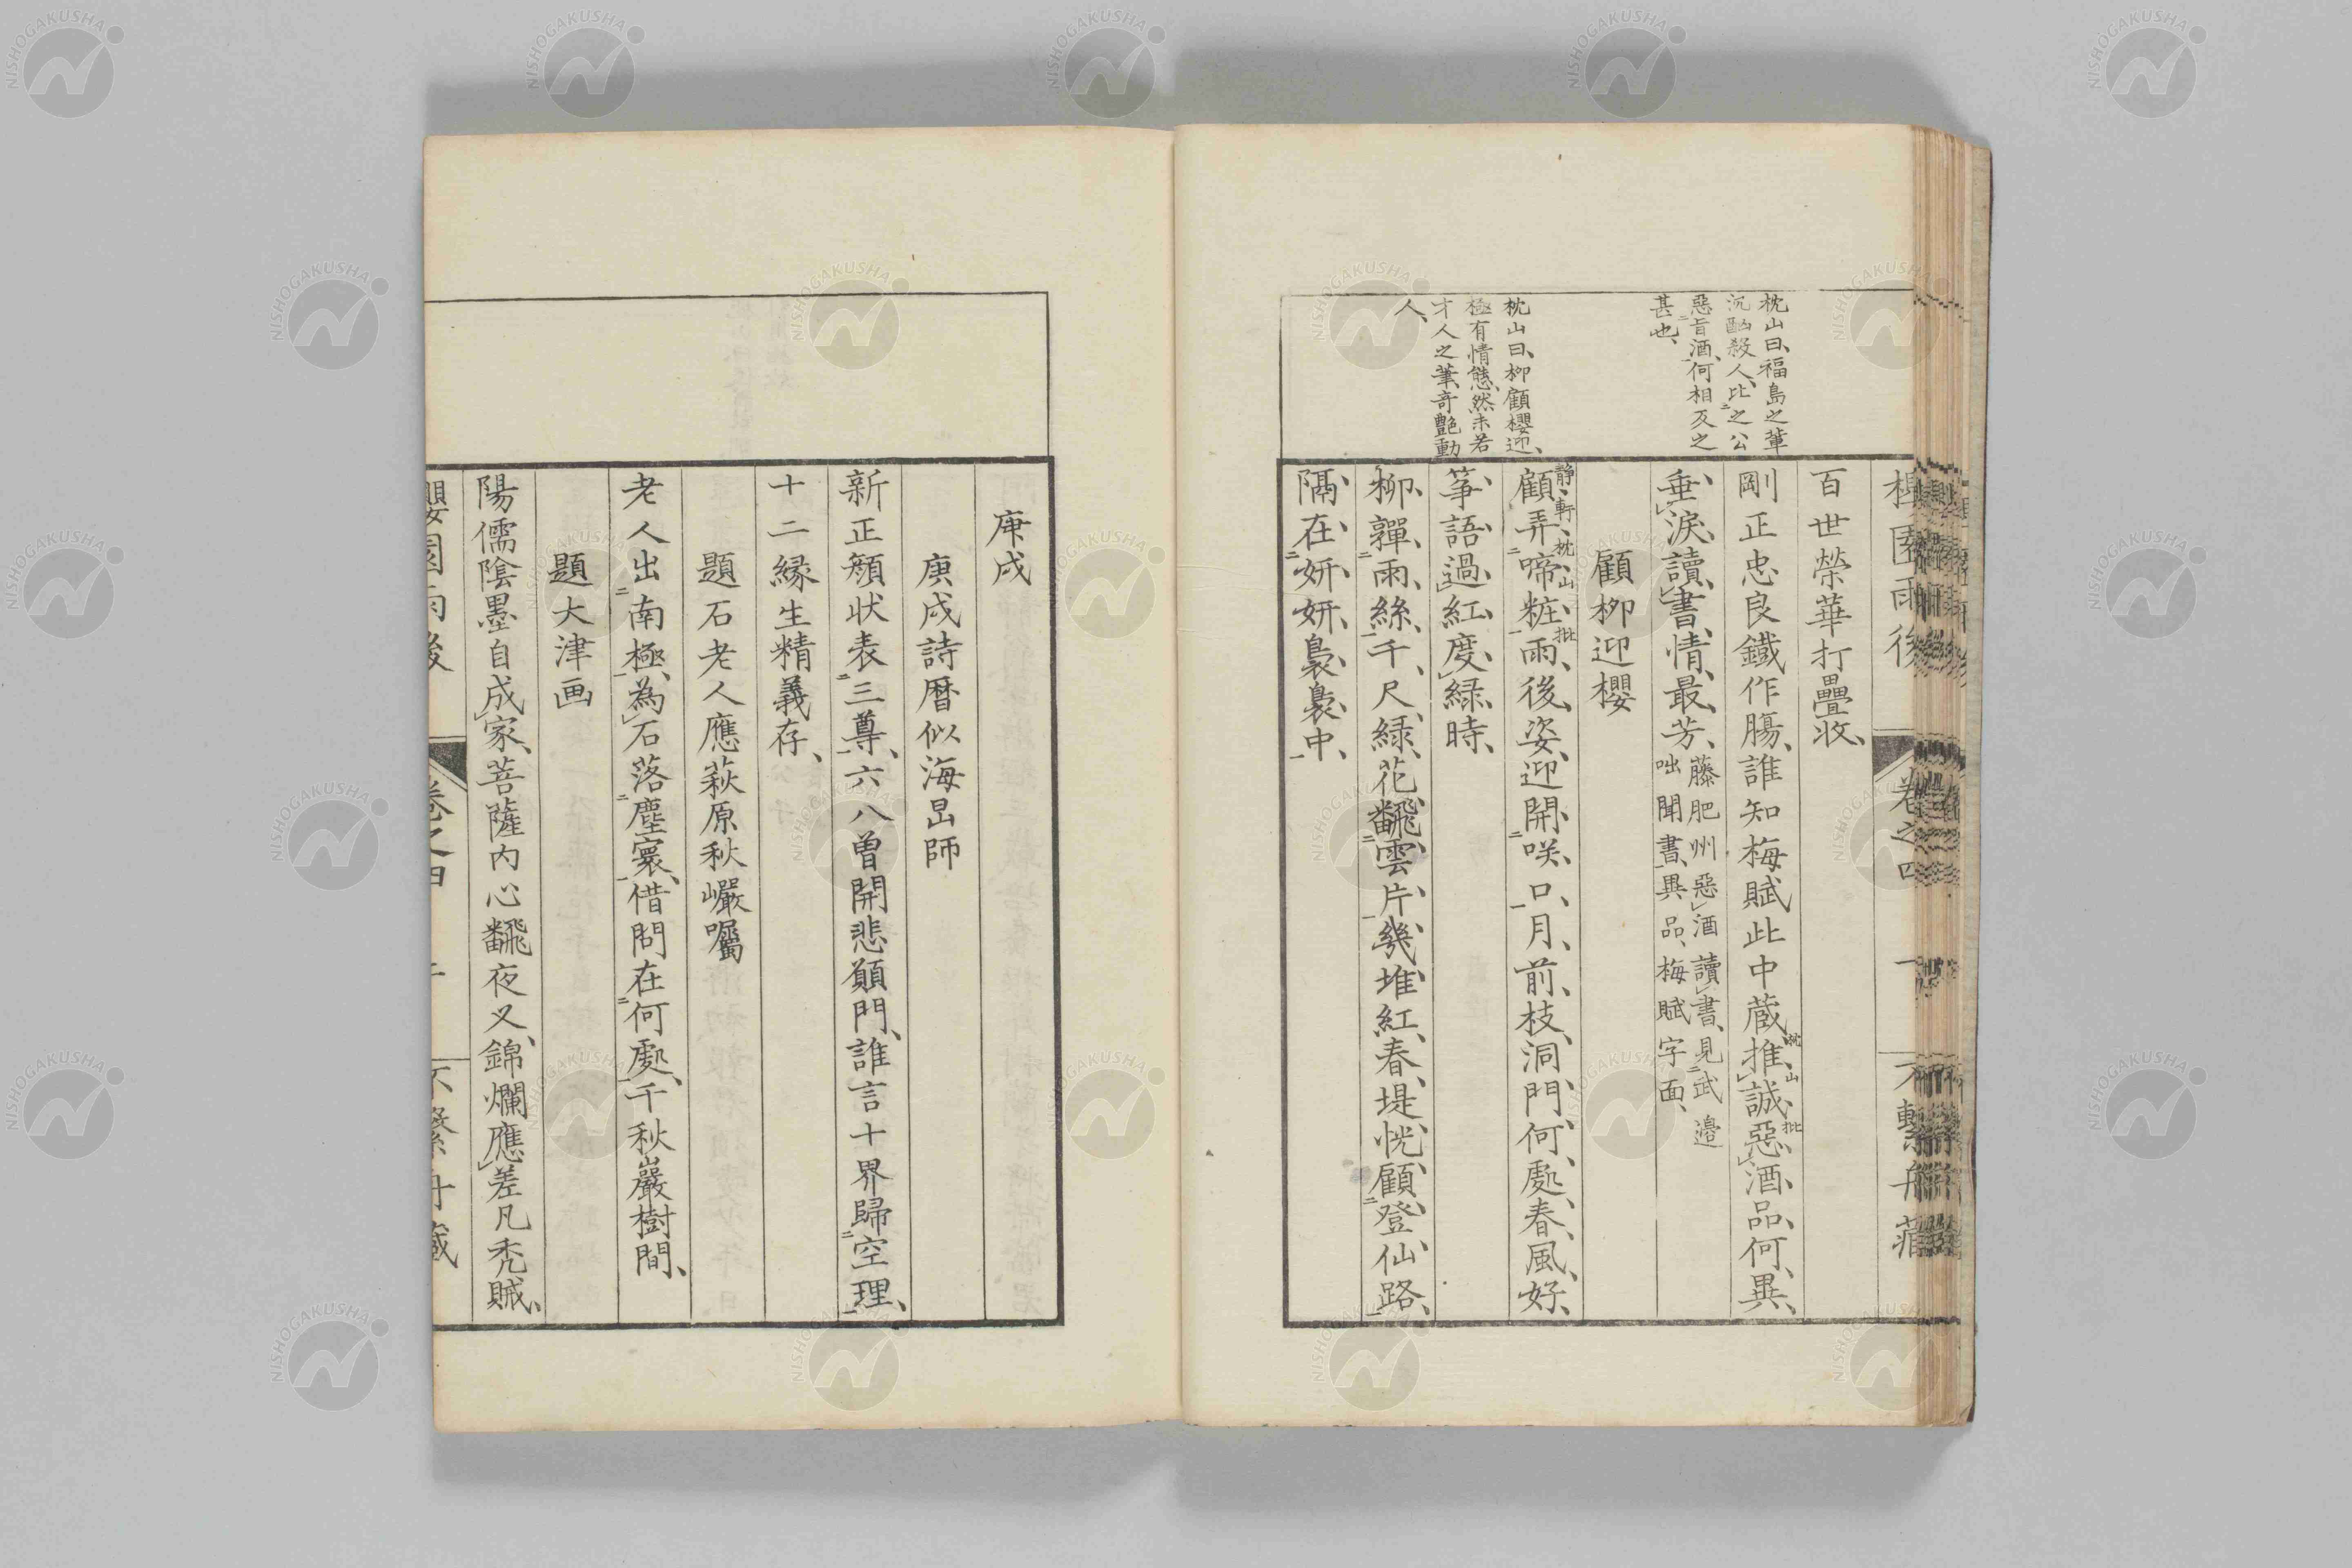 枕山曰、福島之輩
沉酗殺人、比之公
惡旨酒、何相反之
甚也、
枕山曰、柳顧櫻迎、
極有情態、然未若
才人之筆、奇艷動
人、
卷之四
百世榮華打疊收、
剛正忠良鐵作腸、誰知梅賦此中蔵、推誠惡酒品何異、
枕山批
垂淚讀書情最芳、
藤肥州惡酒讀書、見武邉
咄聞書、異品、梅賦字面、
顧柳迎櫻
顧弄啼粧雨後姿、迎開咲口月前枝、洞門何處春風好、
静軒、枕山批
筝語過紅度綠時、
柳嚲雨絲千尺綠、花飜雲片幾堆紅、春堤恍顧登仙路、
隔在妍妍裊裊中、
庚戌
庚戌詩暦似海昷師
新正頽状表三尊、六八曽開悲願門、誰言十界歸空理、
十二縁生精義存、
題石老人應萩原秋巖嘱
老人出南極、為石落塵寰、借問在何處、千秋巖樹間、
題大津画
陽儒陰墨自成家、菩薩内心飜夜叉、錦爛應差凡禿賊、
NISHOGAKUSHA